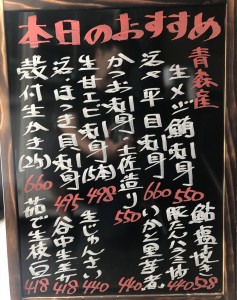 本日のおすすめ
青森産
生メジ鮪刺身 550
活〆平目刺身 660
かつお刺身・土佐造り 550
生甘エビ刺身(5本) 498
活ほっき貝刺身 495
殻付生かき(2ヶ) 660
鮎塩焼き 528
豚たんハラミ 440
いか里芋煮 440
生じゅんさい 440
谷中生姜 418
茹で生枝豆 418